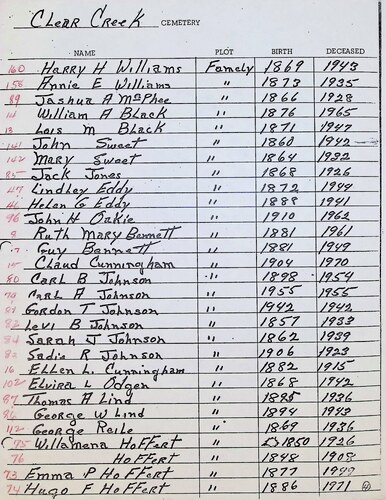 Clear Creek CEMETERY
NAME PLOT BIRTH DECEASED
160 Harry H Williams Family 1869 1943
158 Annie E Williams " 1873 1935
89 Jashua A McPhee " 1866 1928
William A Black " 1876 1965
13 Lois M Black " 1871 1947
141 John Sweet " 1860 1942
142 Mary Sweet " 1864 1932
85 Jack Jones " 1868 1926
47 Lindley Eddy " 1872 1944
46 Helen G Eddy " 1888 1941
96 John H Oakie " 1910 1962
8 Ruth Mary Bennett " 1881 1961
7 Guy Bennett " 1881 1949
15 Chaud Cunningham " 1904 1970
80 Carl B Johnson " 1898 1954
79 Carl A Johnson " 1955 1955
81 Gordon T Johnson " 1942 1942
Levi B Johnson " 1857 1933
84 Sarah J Johnson " 1862 1939
82 Sadie R Johnson " 1906 1923
16 Ellen L. Cunningham " 1882 1915
102 Elvira L Odgen " 1868 1942
87 Thomas A Lind " 1885 1936
86 George W Lind " 1894 1943
112 George Reile " 1869 1936
75 Willamena Hoffert " 1850 1926
76 Hoffert " 1848 1908
73 Emma P Hoffert " 1877 1949
74 Hugo F Hoffert " 1886 1971